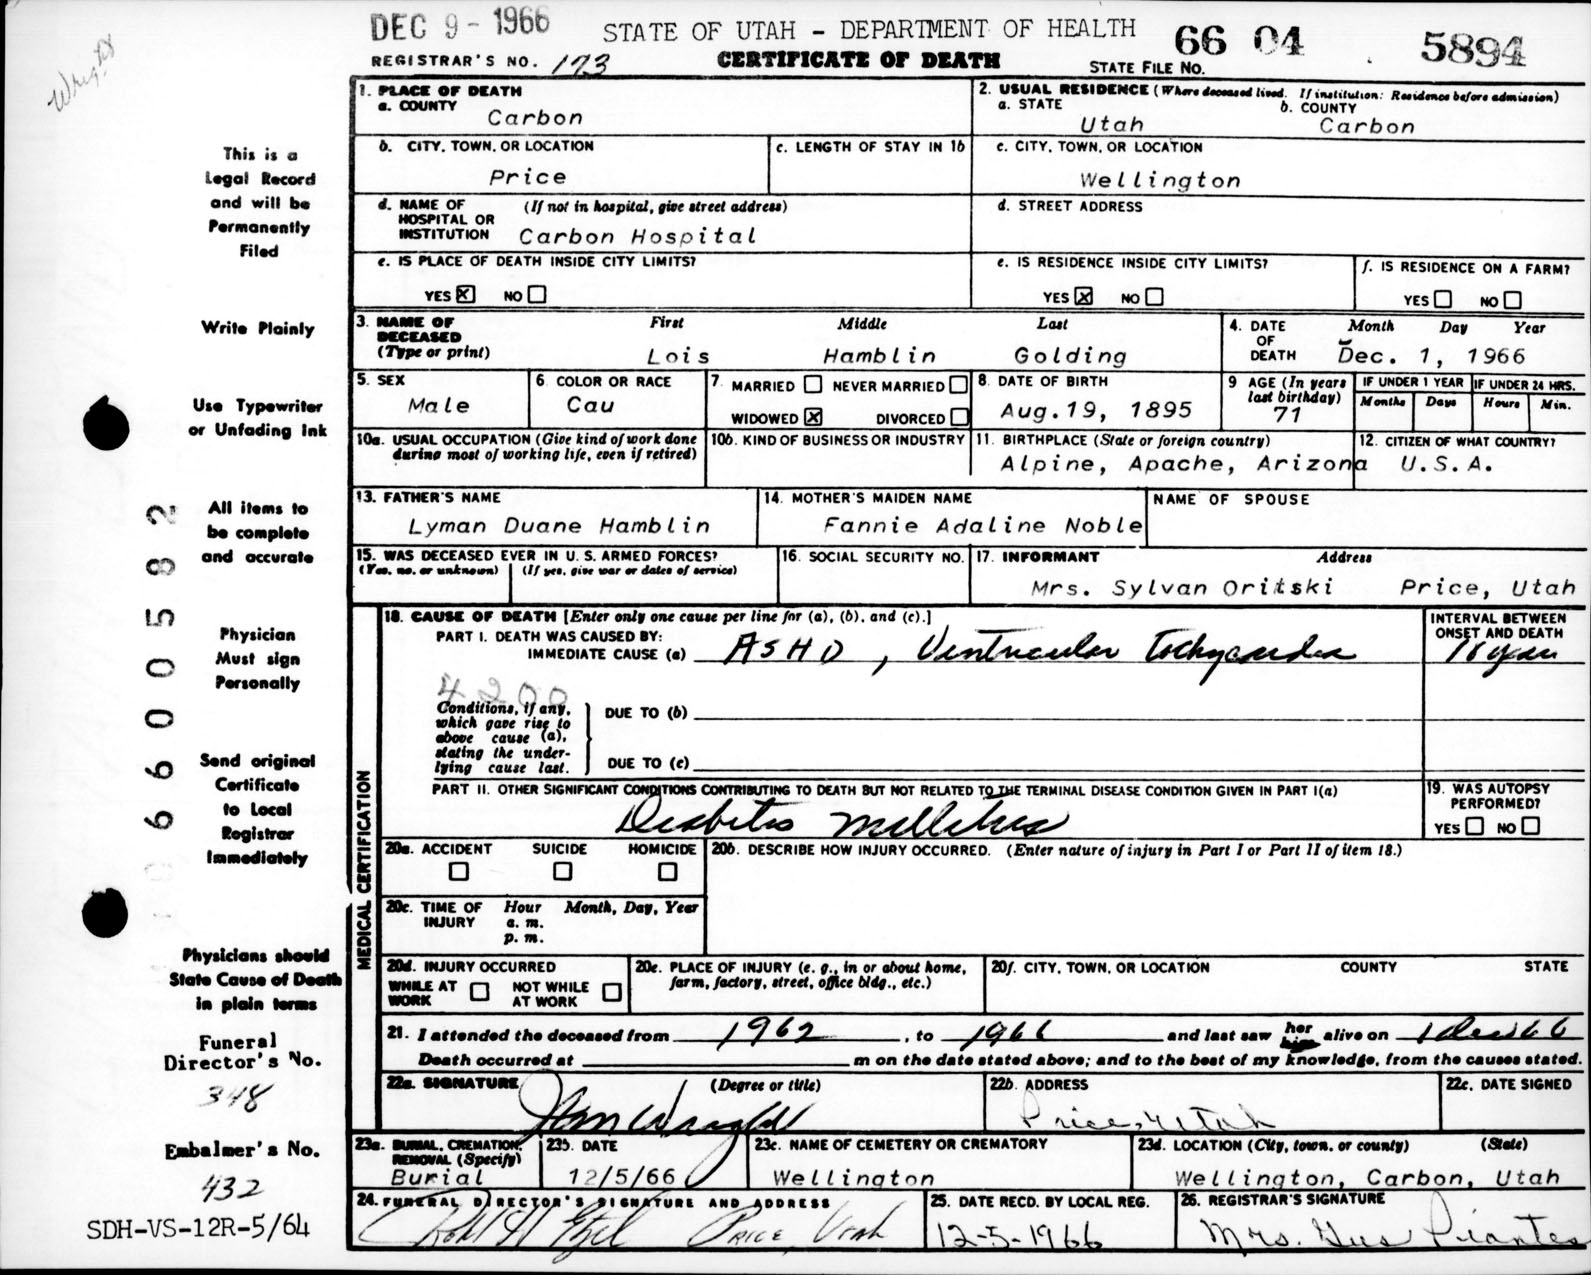 DEC 9 - 1966
STATE OF UTAH - DEPARTMENT OF HEALTH
66 04 5894
REGISTRAR'S NO. 173
CERTIFICATE OF DEATH
STATE FILE NO.
Wright
This is a
Legal Record
and will be
Permanently
Filed
Write Plainly
Use Typewriter
or Unfading Ink
All items to
be complete
and accurate
Physician
Must sign
Personally
Send original
Certificate
to Local
Registrar
Immediately
Physicians should
State Cause of Death
in plain terms
Funeral
Director's No.
348
Embalmer's No.
432
SDH-VS-12R-5/64
6600582
1. PLACE OF DEATH
a. COUNTY
Carbon
2. USUAL RESIDENCE (Where deceased lived. If institution: Residence before admission)
a. STATE b. COUNTY
Utah Carbon
b. CITY, TOWN, OR LOCATION
Price
c. LENGTH OF STAY IN 1b
c. CITY, TOWN, OR LOCATION
Wellington
d. NAME OF (If not in hospital, give street address)
HOSPITAL OR
INSTITUTION Carbon Hospital
d. STREET ADDRESS
e. IS PLACE OF DEATH INSIDE CITY LIMITS?
YES ☒ NO ☐
e. IS RESIDENCE INSIDE CITY LIMITS?
YES ☒ NO ☐
f. IS RESIDENCE ON A FARM?
YES ☐ NO ☐
3. NAME OF First Middle Last
DECEASED
(Type or print) Lois Hamblin Golding
4. DATE Month Day Year
OF
DEATH Dec. 1, 1966
5. SEX
Male
6. COLOR OR RACE
Cau
7. MARRIED ☐ NEVER MARRIED ☐
WIDOWED ☒ DIVORCED ☐
8. DATE OF BIRTH
Aug. 19, 1895
9 AGE (In years
last birthday)
71
IF UNDER 1 YEAR IF UNDER 24 HRS.
Months Days Hours Min.
10a. USUAL OCCUPATION (Give kind of work done
during most of working life, even if retired)
10b. KIND OF BUSINESS OR INDUSTRY
11. BIRTHPLACE (State or foreign country)
Alpine, Apache, Arizona
12. CITIZEN OF WHAT COUNTRY?
U.S.A.
13. FATHER'S NAME
Lyman Duane Hamblin
14. MOTHER'S MAIDEN NAME
Fannie Adaline Noble
NAME OF SPOUSE
15. WAS DECEASED EVER IN U. S. ARMED FORCES?
(Yes, no, or unknown) (If yes, give war or dates of service)
16. SOCIAL SECURITY NO.
17. INFORMANT Address
Mrs. Sylvan Oritski Price, Utah
MEDICAL CERTIFICATION
18. CAUSE OF DEATH [Enter only one cause per line for (a), (b), and (c).]
PART I. DEATH WAS CAUSED BY:
IMMEDIATE CAUSE (a) ASHD, Ventricular tachycardia
INTERVAL BETWEEN
ONSET AND DEATH
years
4200
Conditions, if any,
which gave rise to
above cause (a),
stating the under-
lying cause last.
DUE TO (b)
DUE TO (c)
PART II. OTHER SIGNIFICANT CONDITIONS CONTRIBUTING TO DEATH BUT NOT RELATED TO THE TERMINAL DISEASE CONDITION GIVEN IN PART I(a)
Diabetes Mellitus
19. WAS AUTOPSY
PERFORMED?
YES ☐ NO ☐
20a. ACCIDENT SUICIDE HOMICIDE
☐ ☐ ☐
20b. DESCRIBE HOW INJURY OCCURRED. (Enter nature of injury in Part I or Part II of item 18.)
20c. TIME OF Hour Month, Day, Year
INJURY a. m.
p. m.
20d. INJURY OCCURRED
WHILE AT ☐ NOT WHILE ☐
WORK AT WORK
20e. PLACE OF INJURY (e. g., in or about home,
farm, factory, street, office bldg., etc.)
20f. CITY, TOWN, OR LOCATION COUNTY STATE
21. I attended the deceased from 1962, to 1966 and last saw her him alive on 1 Dec 66
Death occurred at m on the date stated above; and to the best of my knowledge, from the causes stated.
22a. SIGNATURE (Degree or title)
22b. ADDRESS
Price, Utah
22c. DATE SIGNED
23a. BURIAL, CREMATION,
REMOVAL (Specify)
Burial
23b. DATE
12/5/66
23c. NAME OF CEMETERY OR CREMATORY
Wellington
23d. LOCATION (City, town, or county) (State)
Wellington, Carbon, Utah
24. FUNERAL DIRECTOR'S SIGNATURE AND ADDRESS
Price, Utah
25. DATE RECD. BY LOCAL REG.
12-5-1966
26. REGISTRAR'S SIGNATURE
Mrs. Gus Piantes